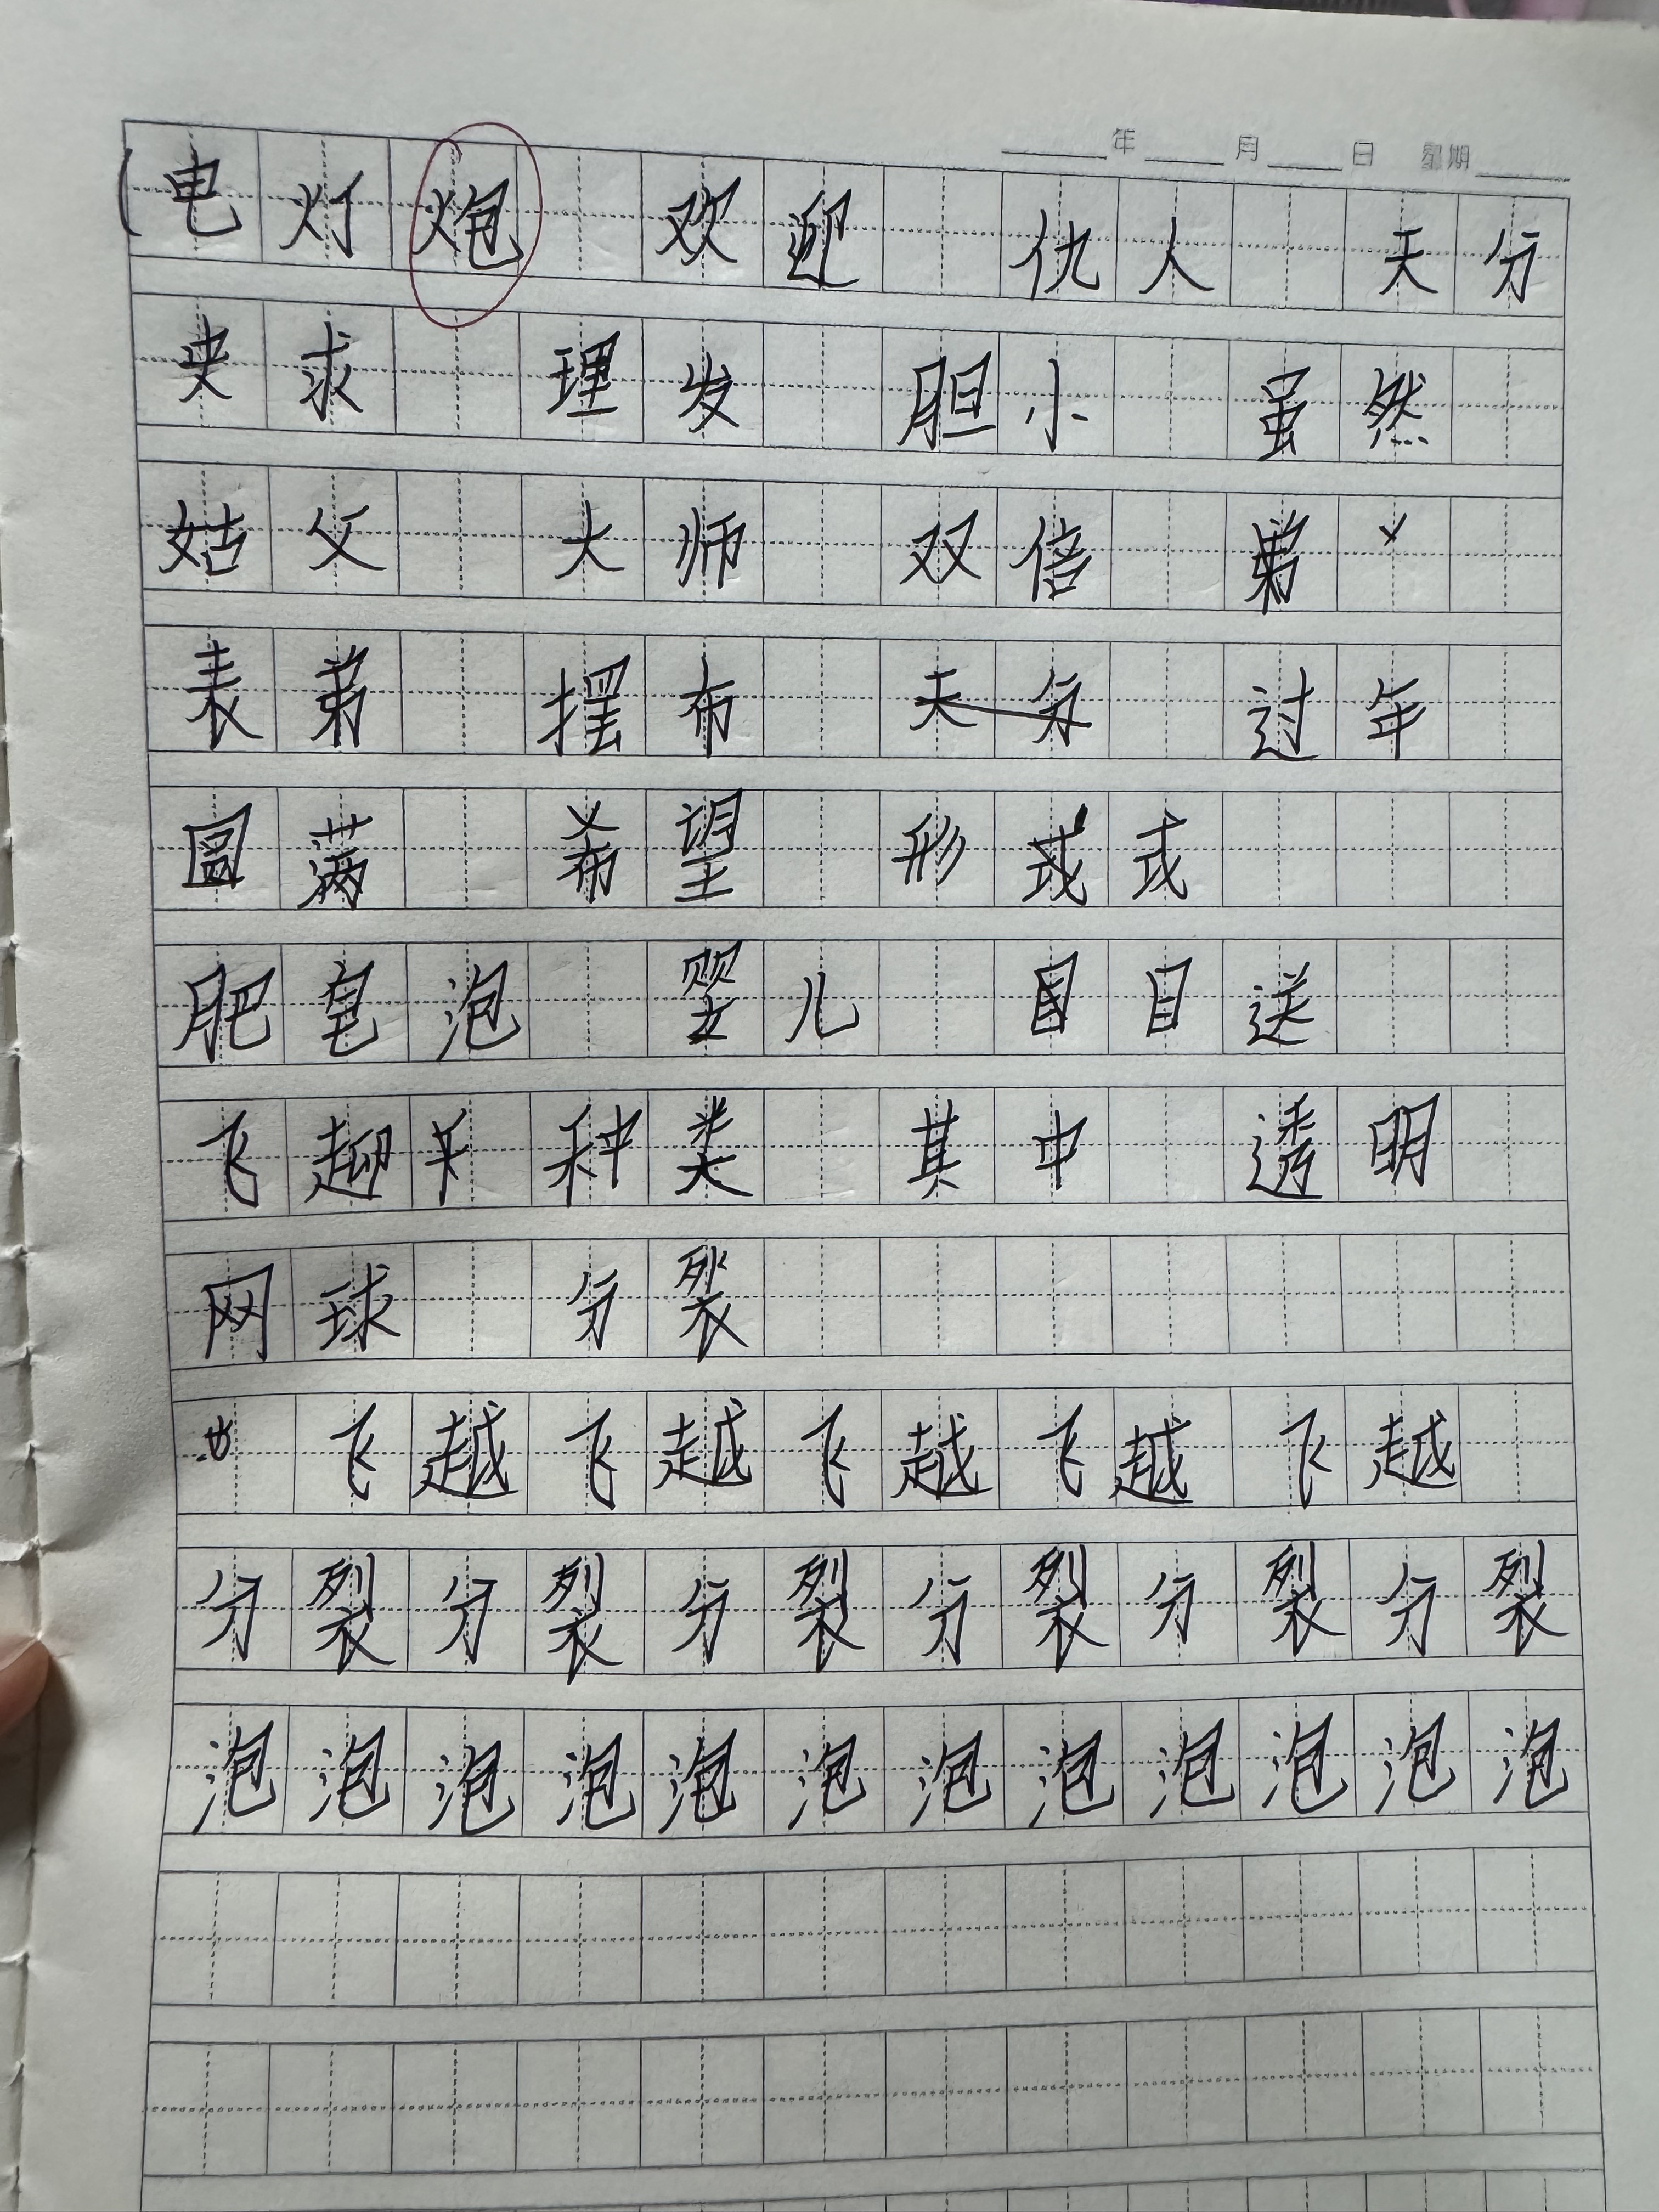 年 月 日 星期
电灯炮 欢迎 仇人 天分
央求 理发 胆小 虽然
姑父 大师 双倍 弟
表弟 摆布 天分 过年
圆满 希望 形式式
肥皂泡 婴儿 目目送
飞越 种类 其中 透明
网球 分裂
飞越飞越飞越飞越飞越
分裂分裂分裂分裂分裂分裂
泡泡泡泡泡泡泡泡泡泡泡泡